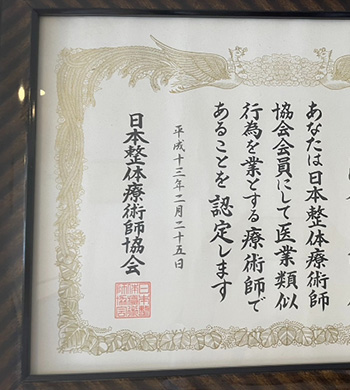 あなたは日本整体療術師
協会会員にして医業類似
行為を業とする療術師で
あることを認定します
平成十三年二月二十五日
日本整体療術師協会